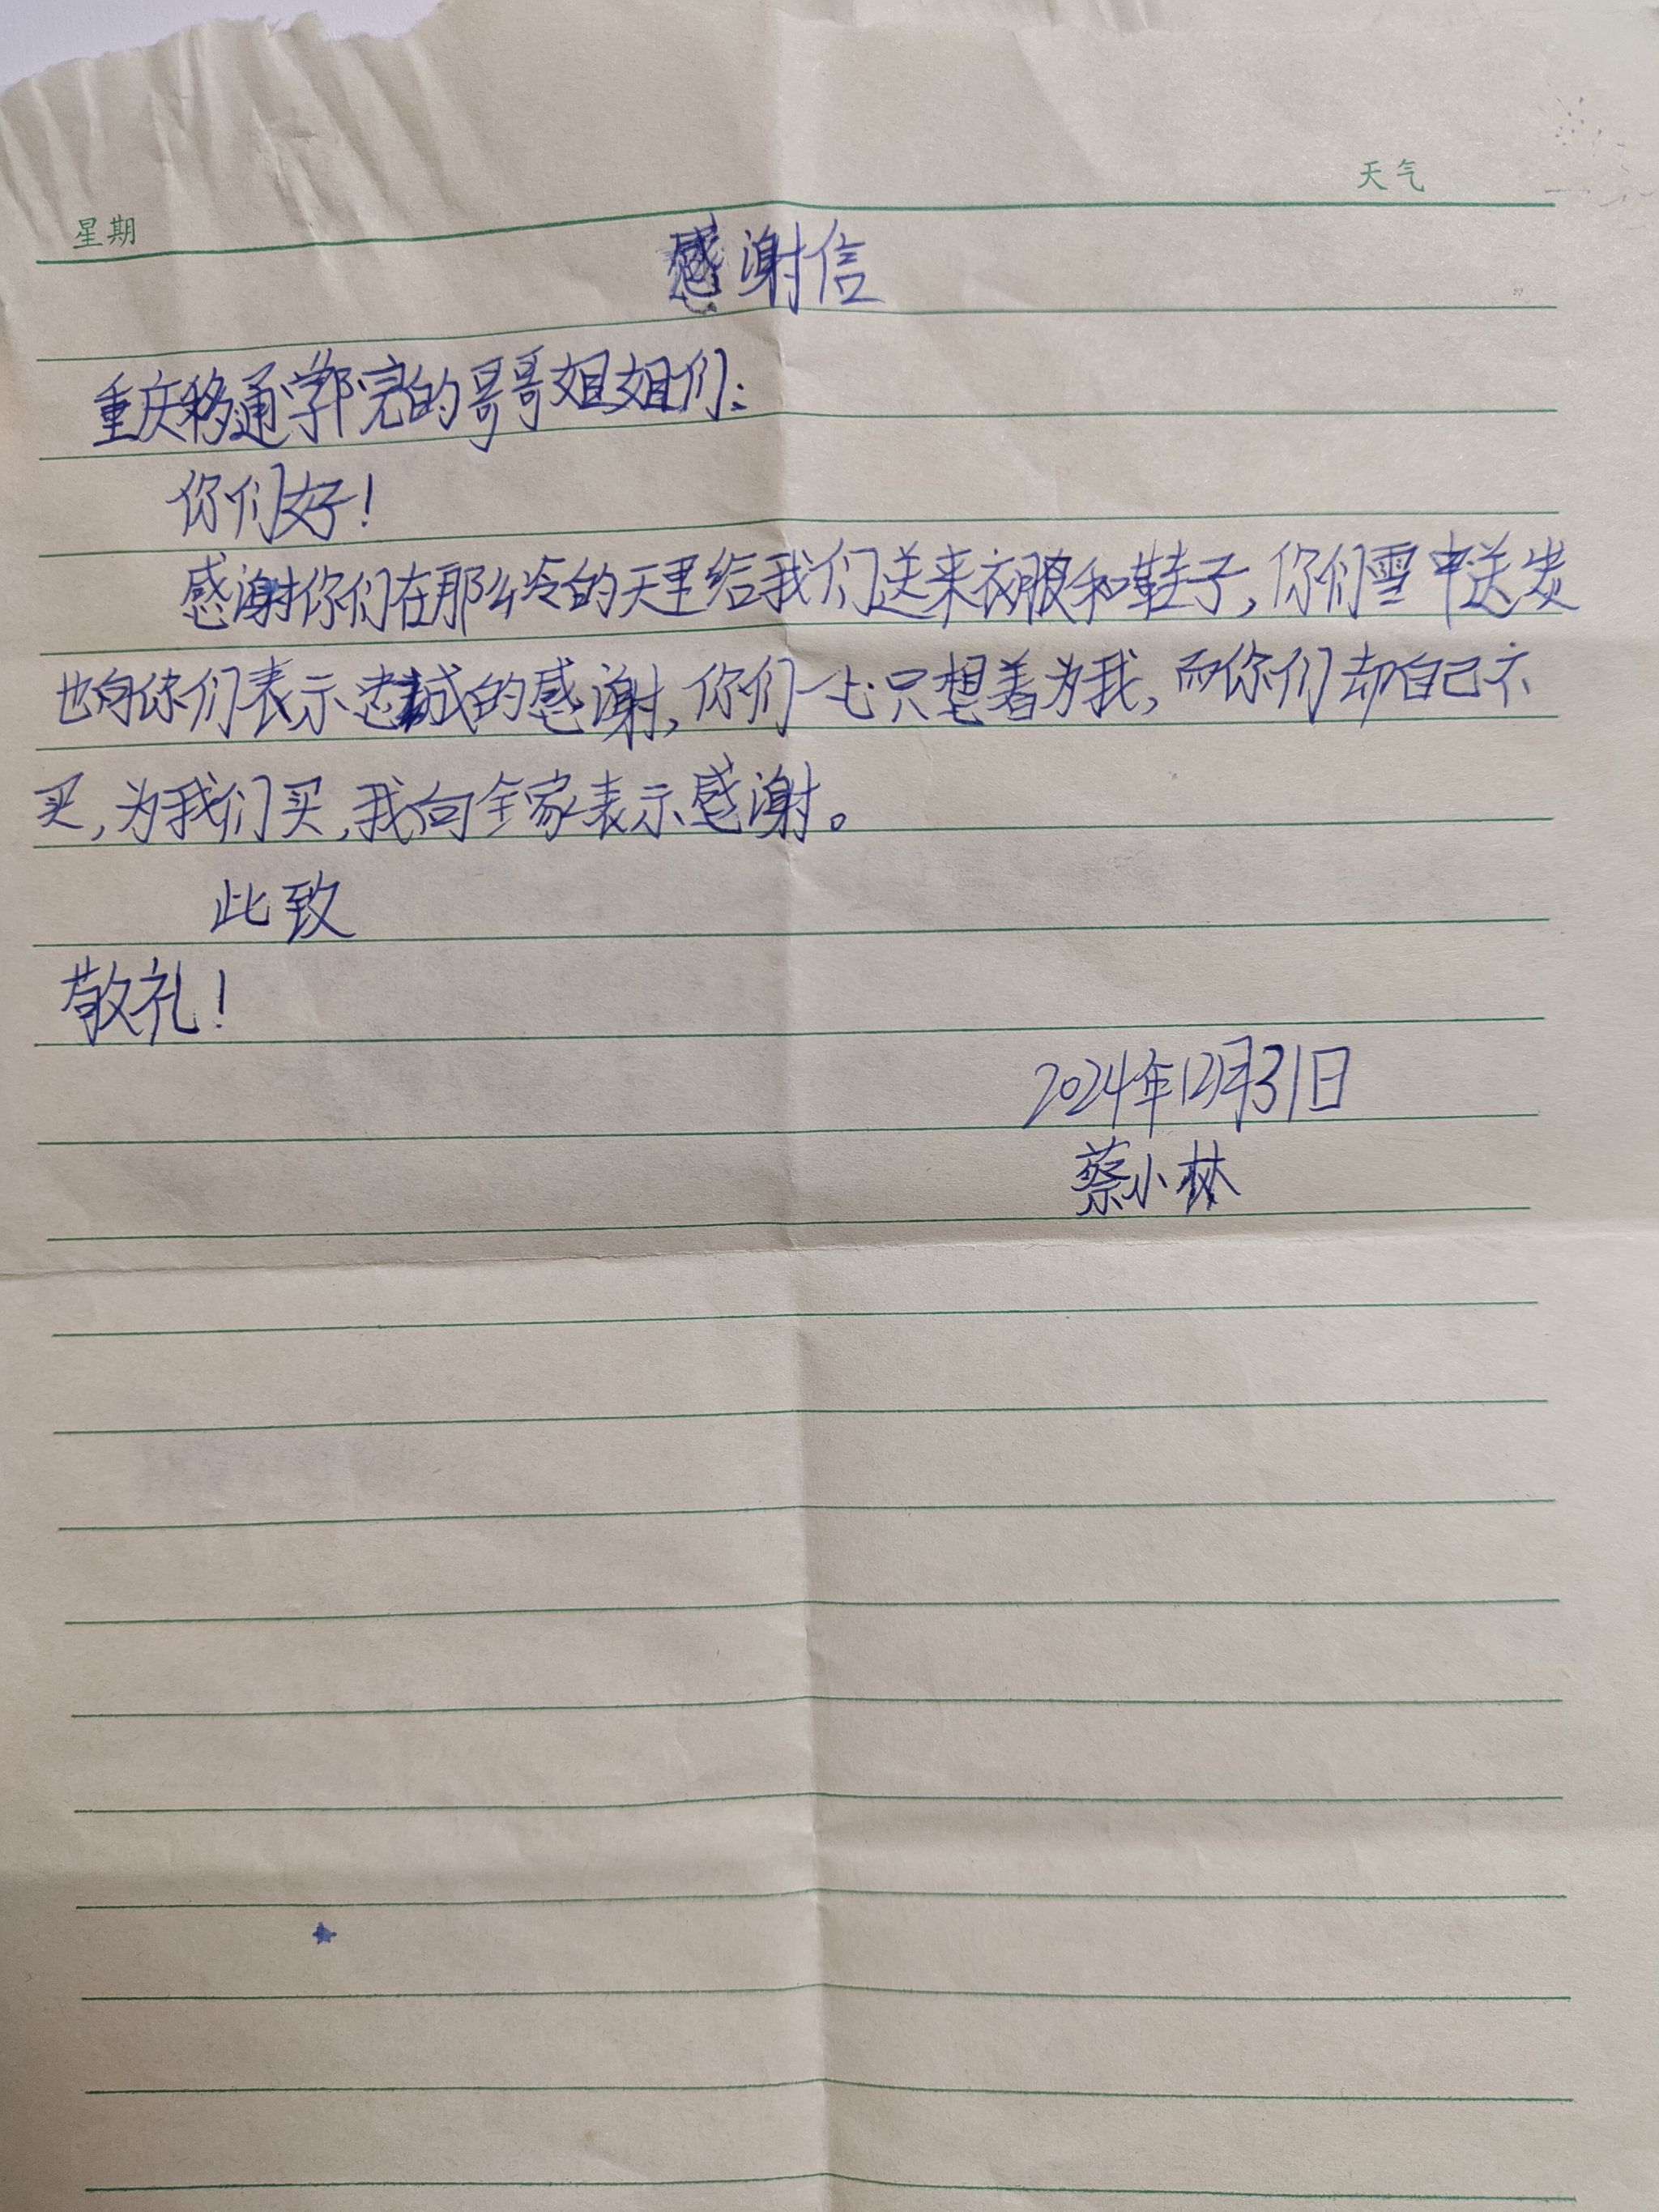 星期
天气
感谢信
重庆移通学院的哥哥姐姐们:
你们好!
感谢你们在那么冷的天里给我们送来衣服和鞋子,你们雪中送炭
也向你们表示忠诚的感谢,你们一心只想着为我,而你们却自己不
买,为我们买,我向全家表示感谢。
此致
敬礼!
2024年12月31日
蔡小林